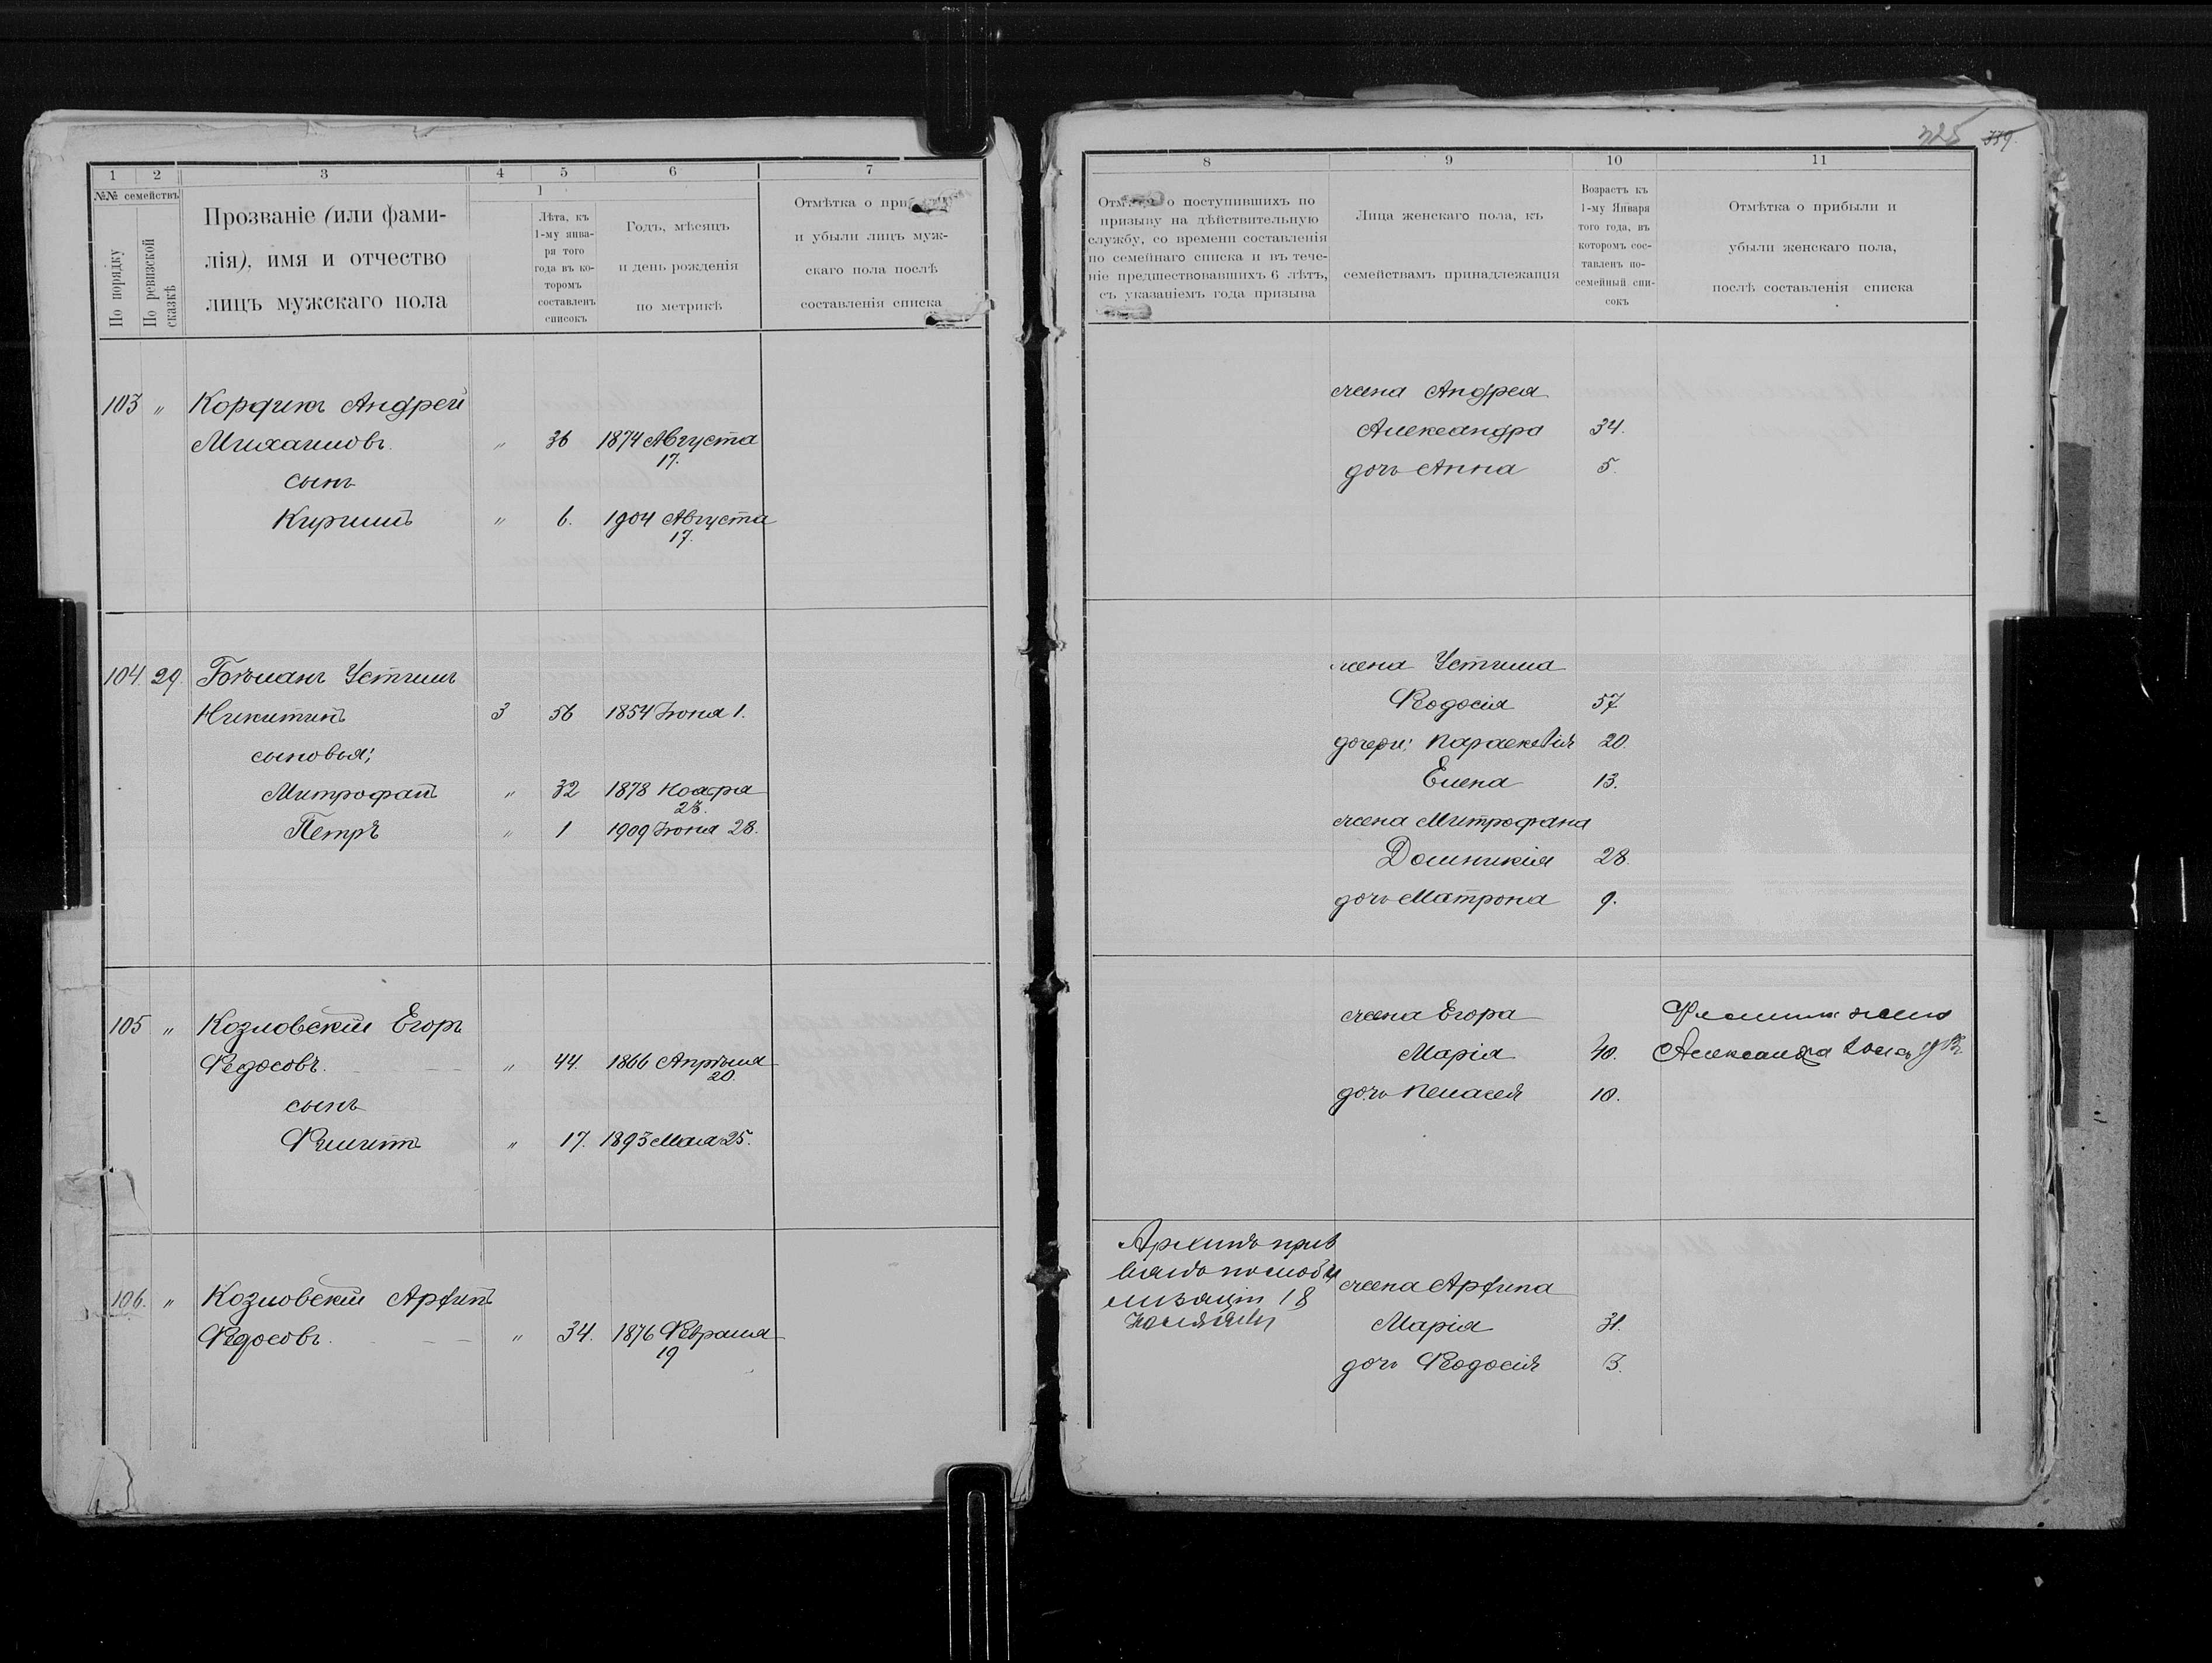 325 339.
1 2 3 4 5 6 7
№№ семействъ
По порядку
По ревизской сказкѣ
Прозваніе (или фами-
лія), имя и отчество
лицъ мужскаго пола
1
Лѣта, къ
1-му янва-
ря того
года въ ко-
торомъ
составленъ
списокъ
Годъ, мѣсяцъ
и день рожденія
по метрикѣ
Отмѣтка о при
и убыли лицъ муж-
скаго пола послѣ
составленія списка
103 „ Кордикъ Андрей
Михаиловъ „ 36 1874 Августа
17.
сынъ
Кирилъ „ 6. 1904 Августа
17.
104. 29. Устимъ
Никитинъ 3 56 1854 Іюня 1.
сыновья;
Митрофанъ „ 32 1878 Ноября
23.
Петръ „ 1 1909 Іюня 28.
105 „ Козловскій Егоръ
Федосовъ. „ 44. 1866 Апрѣля
20.
сынъ
Филипъ „ 17. 1893 Мая 25.
106. „ Козловскій Архипъ
Федосовъ. „ 34. 1876 Февраля
19
8 9 10 11
Отмѣтка о поступившихъ по
призыву на дѣйствительную
службу, со времени составленія
по семейнаго списка и въ тече-
ніе предшествовавшихъ 6 лѣтъ,
съ указаніемъ года призыва
Лица женскаго пола, къ
семействамъ принадлежащія
Возрастъ къ
1-му Января
того года, въ
которомъ сос-
тавленъ по-
семейный спи-
сокъ
Отмѣтка о прибыли и
убыли женскаго пола,
послѣ составленія списка
жена Андрея
Александра 34.
дочь Анна 5.
жена Устима
Феодосія 57.
дочери: Параскевія 20.
Елена 13.
жена Митрофана
Домникія 28.
дочь Матрона 9.
жена Егора
Марія 40. Александра
дочь Пелагея 10.
Архипъ
по моби
лизаціи 18
жена Архипа
Марія 31.
дочь Феодосія 3.